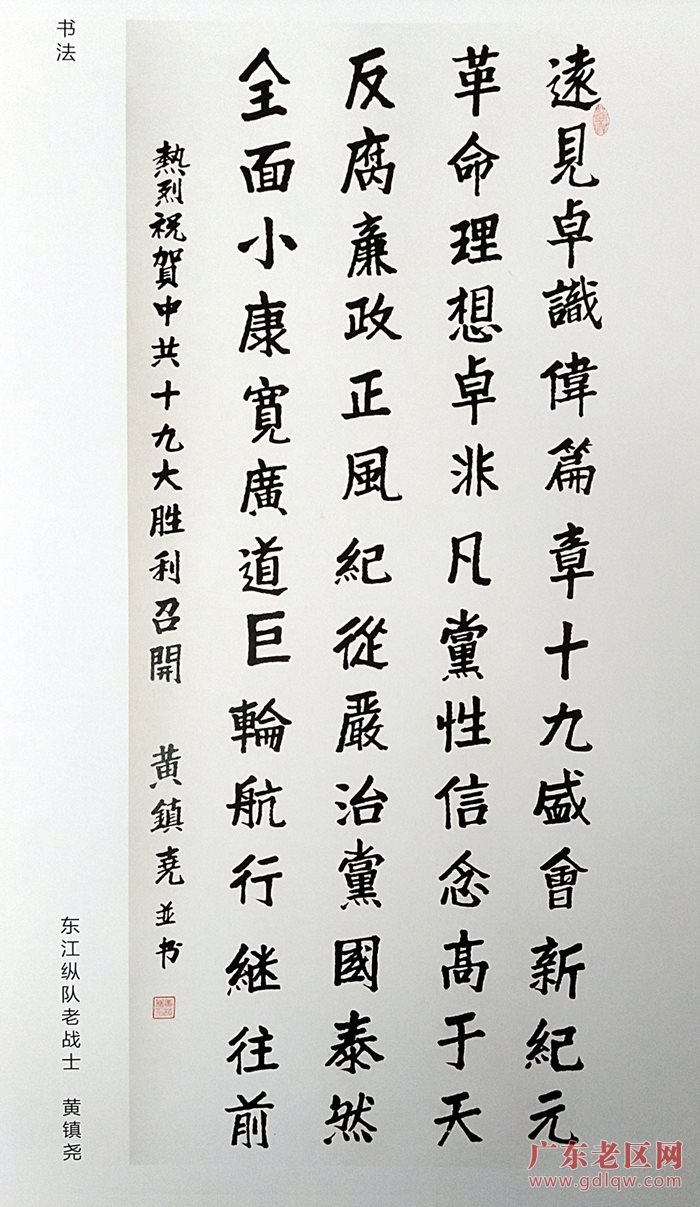 遠見卓識偉篇章十九盛會新紀元
革命理想卓非凡黨性信念高于天
反腐廉政正風紀從嚴治黨國泰然
全面小康寬廣道巨輪航行継往前
熱烈祝賀中共十九大胜利召開 黄鎮尭並书
书法
东江纵队老战士 黄镇尧
广东老区网
www.gdlqw.com